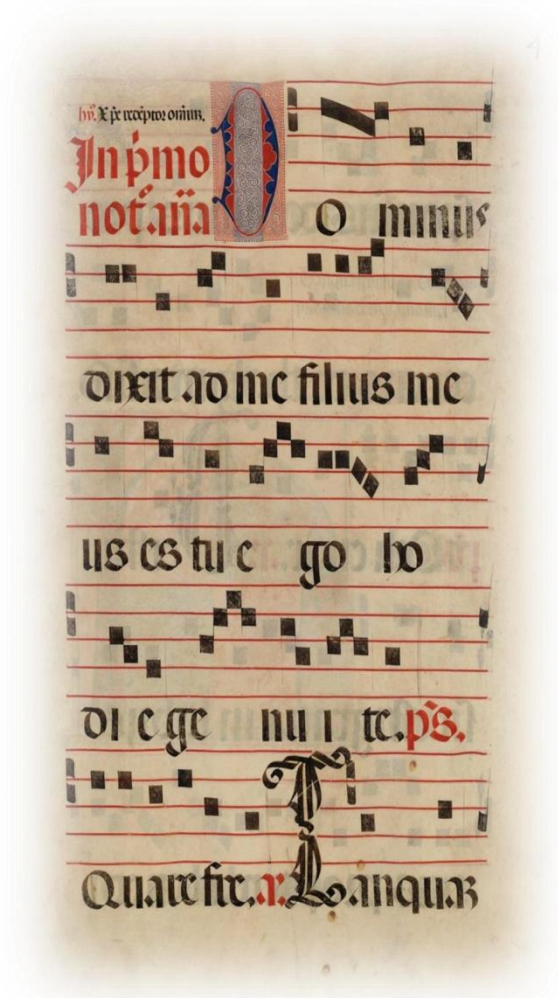 hy̾. Xp̄e rede̅ptor om̅ium.
In p̓mo
not̾. an̅a
DO minus
dixit ad me filius me
us es tu e go ho
di e ge nu i te. p̄s.
Quare fre. a. Tanquaz